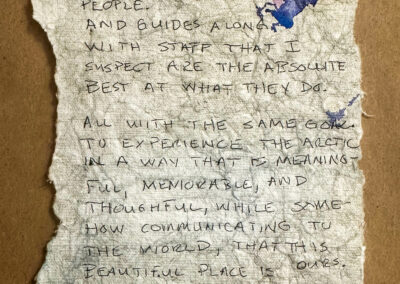 PEOPLE.
AND GUIDES ALONG
WITH STAFF THAT I
SUSPECT ARE THE ABSOLUTE
BEST AT WHAT THEY DO.
ALL WITH THE SAME GOAL.
TO EXPERIENCE THE ARCTIC
IN A WAY THAT IS MEANING-
FUL, MEMORABLE, AND
THOUGHTFUL, WHILE SOME-
HOW COMMUNICATING TO
THE WORLD, THAT THIS
BEAUTIFUL PLACE IS OURS.